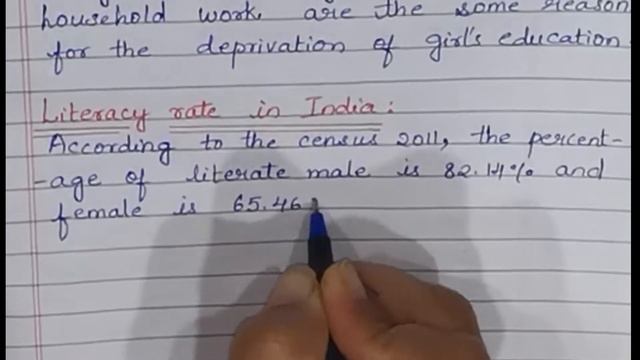 household work, are the some reason
for the deprivation of girl's education
Literacy rate in India:
According to the census 2011, the percent-
-age of literate male is 82.14% and
female is 65.46